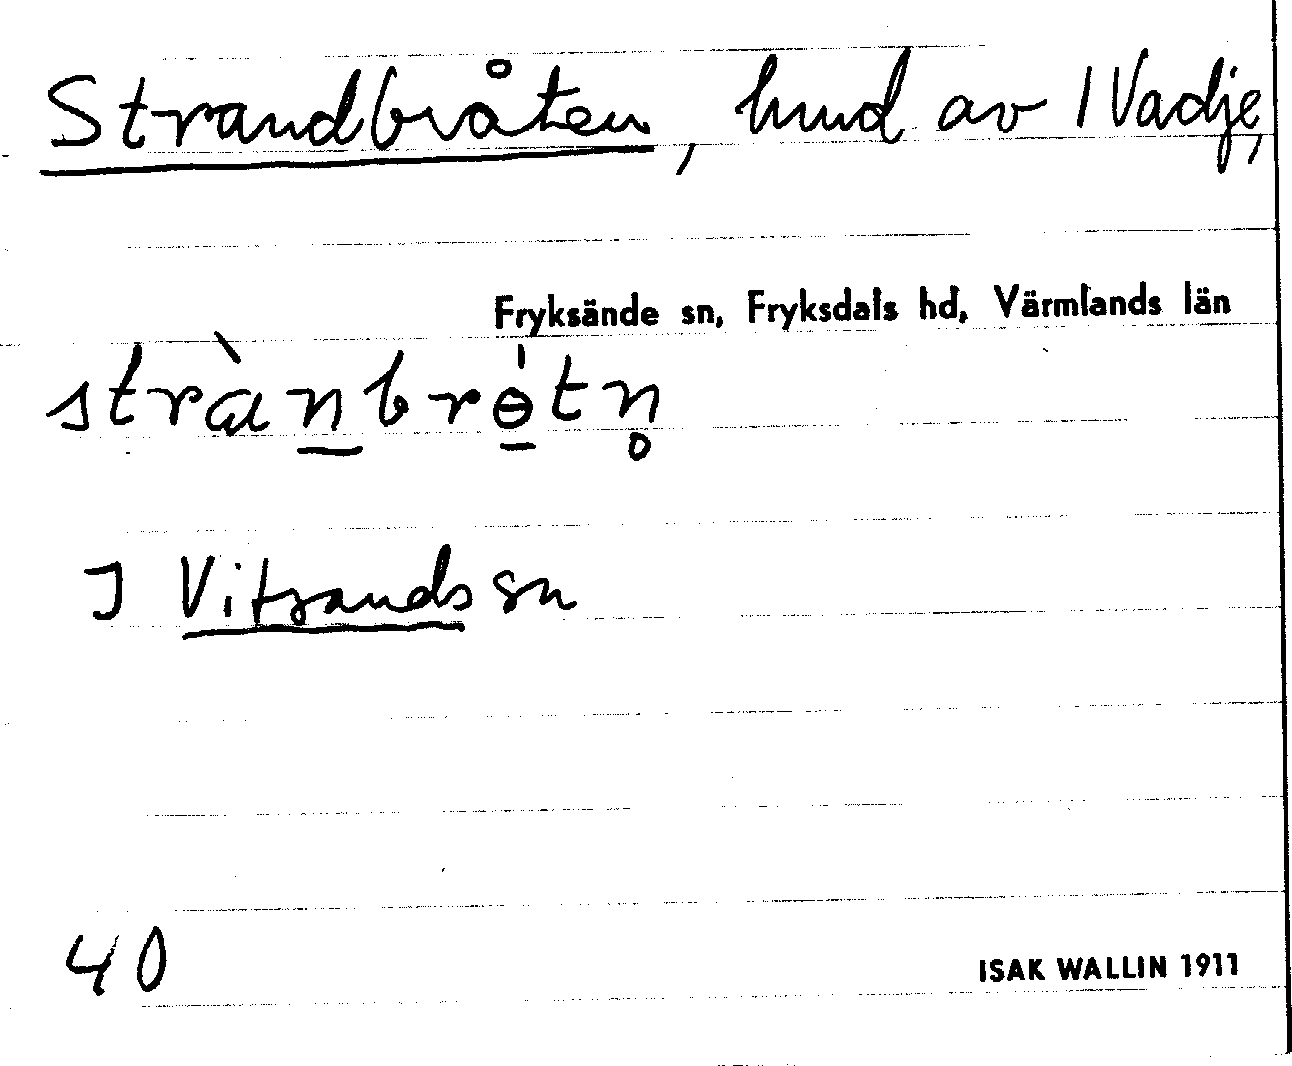 Strandbråten, hmd av 1 Vadje,
Fryksände sn, Fryksdals hd, Värmlands län
strànbrɵ̀tn̥
I Vitsands sn
40
ISAK WALLIN 1911